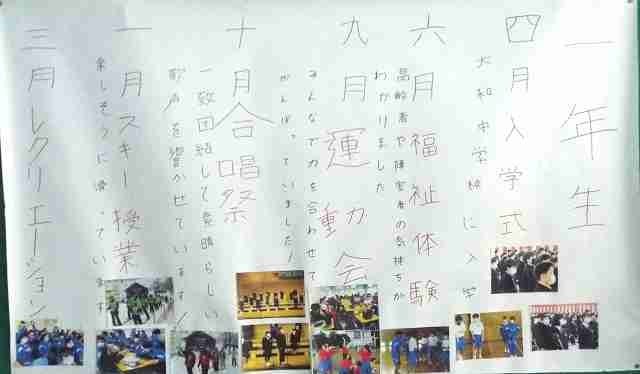 一年生
四月入学式
大和中学校に入学
六月福祉体験
高齢者や障害者の気持ちが
わかりました
九月運動会
みんなで力を合わせて
がんばっていました!
十月合唱祭
一致団結して素晴らしい
歌声を響かせています!
一月スキー授業
楽しそうに滑っています
三月レクリエーション